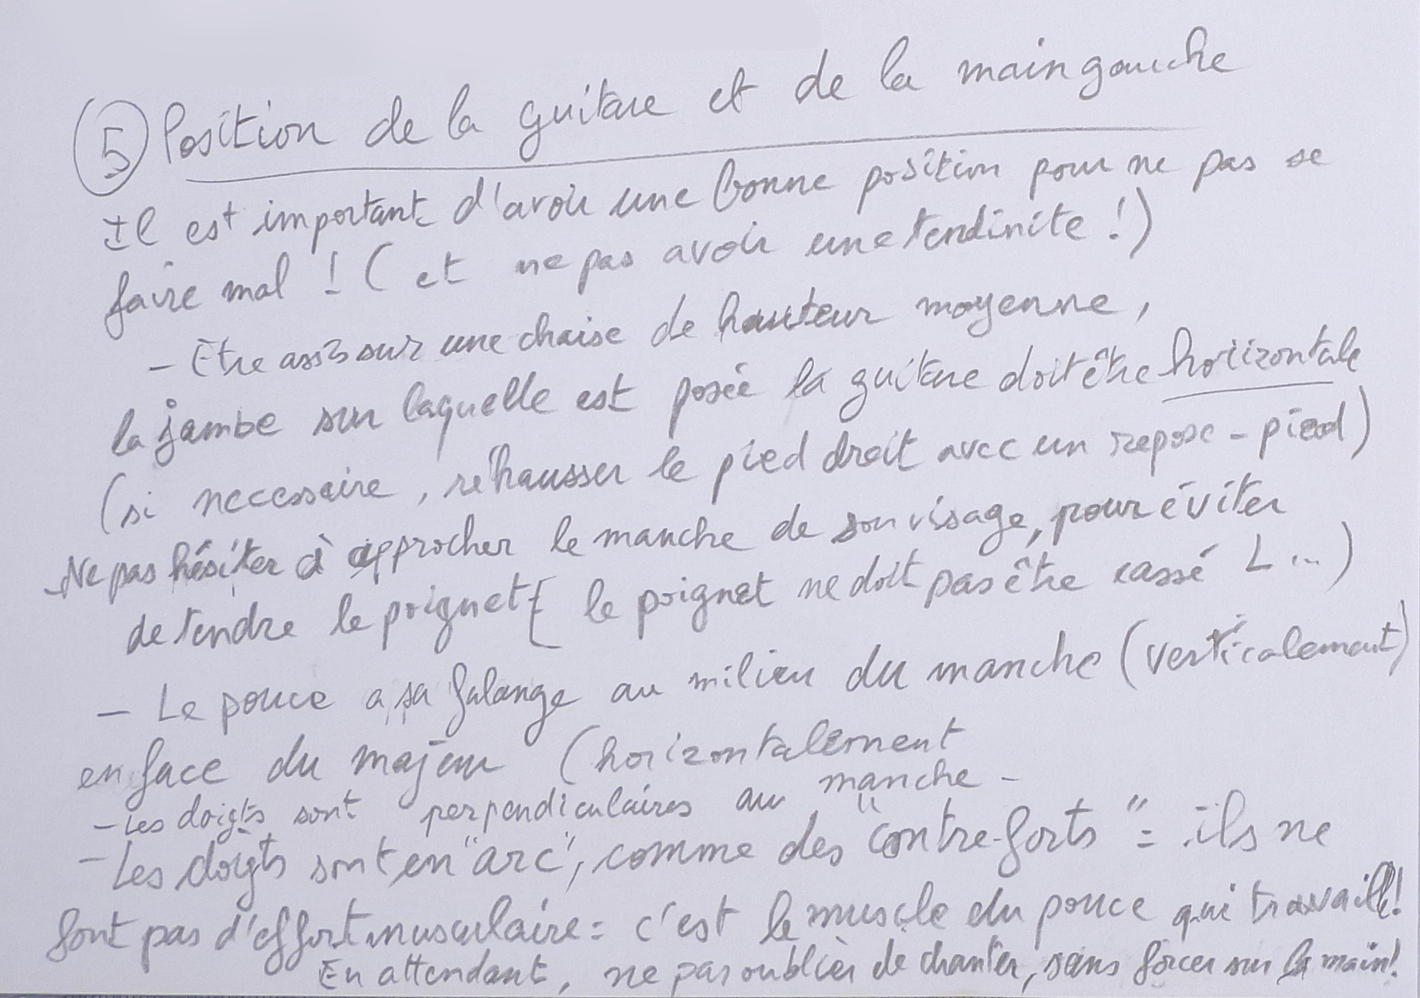 (5) Position de la guitare et de la main gauche
Il est important d'avoir une bonne position pour ne pas se
faire mal ! (et ne pas avoir une tendinite !)
- Etre assis sur une chaise de hauteur moyenne,
la jambe sur laquelle est posée la guitare doit être horizontale
(si necessaire, réhausser le pied droit avec un repose-pied)
- Ne pas hésiter à approcher le manche de son visage, pour éviter
de tendre le poignet ( le poignet ne doit pas être cassé L ...)
- Le pouce a sa falange au milieu du manche (verticalement)
en face du majeur (horizontalement
- Les doigts sont perpendiculaires au manche -
- Les doigts sont en "arc", comme des "contre-forts" = ils ne
font pas d'effort musculaire = c'est le muscle du pouce qui travaille!
En attendant, ne pas oublier de chanter, sans forcer sur la main!